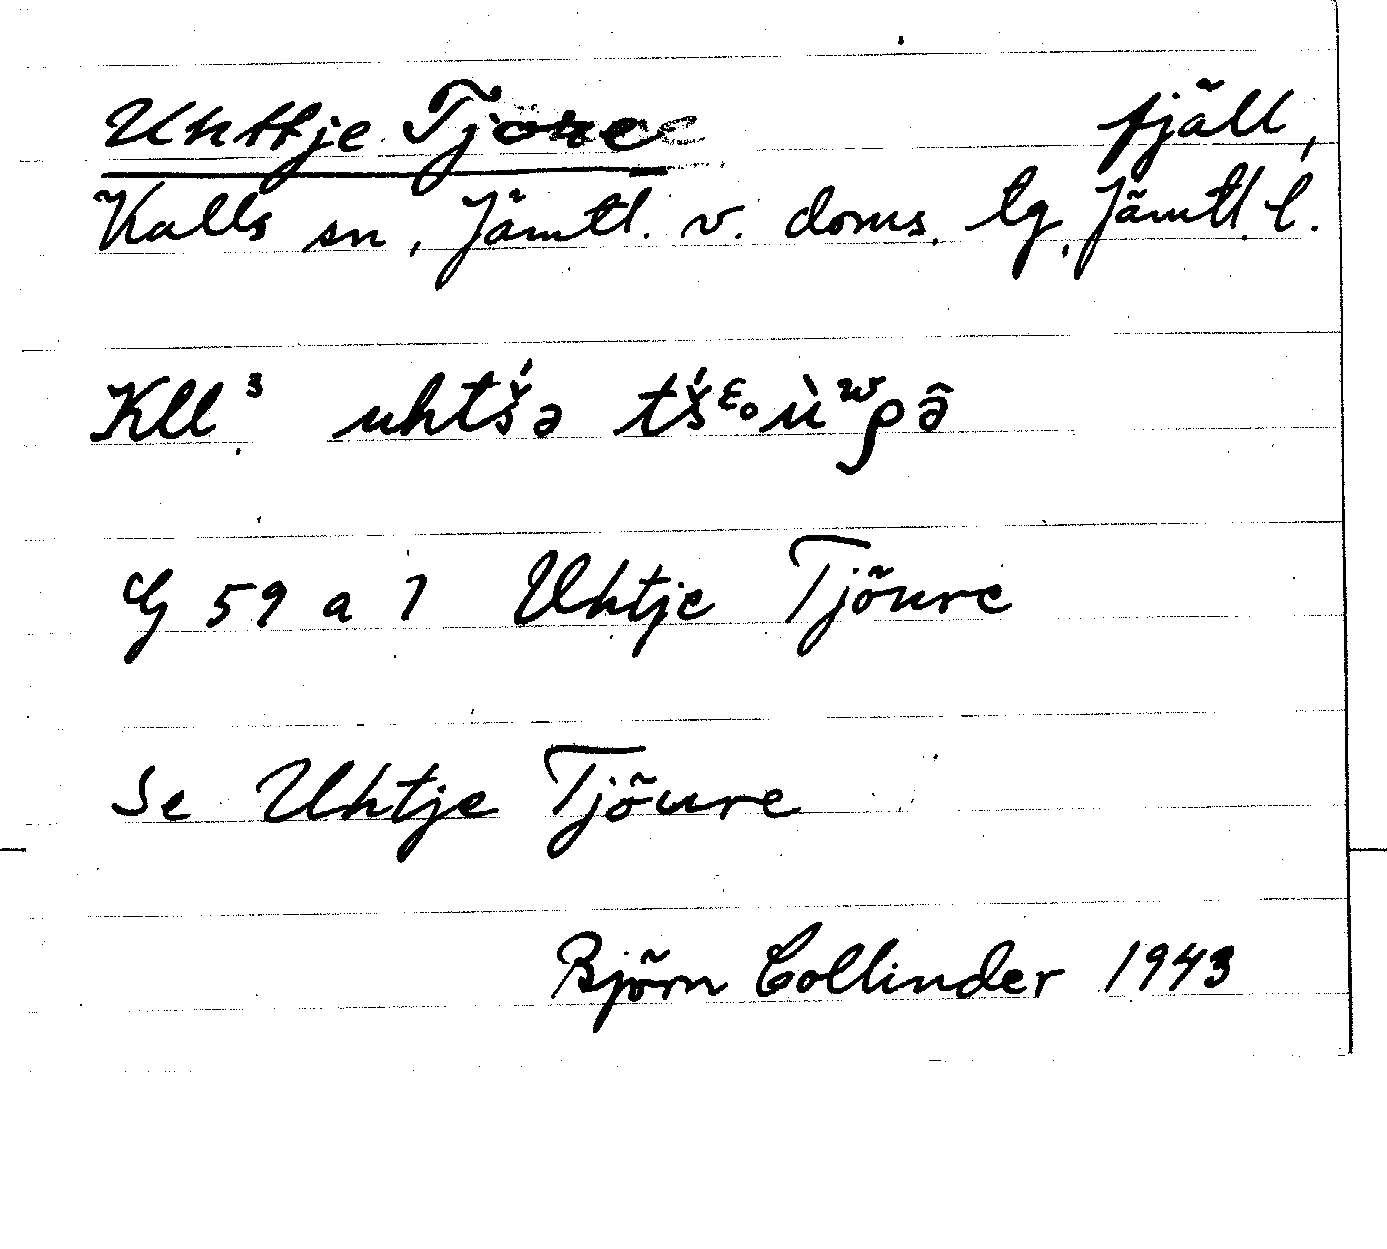 Uhttje Tjöure fjäll,
Kalls sn, Jämtl. v. doms. lg, Jämtl. l.
Kll³
G 59 a 1 Uhtje Tjöure
Se Uhtje Tjöure
Björn Collinder 1943